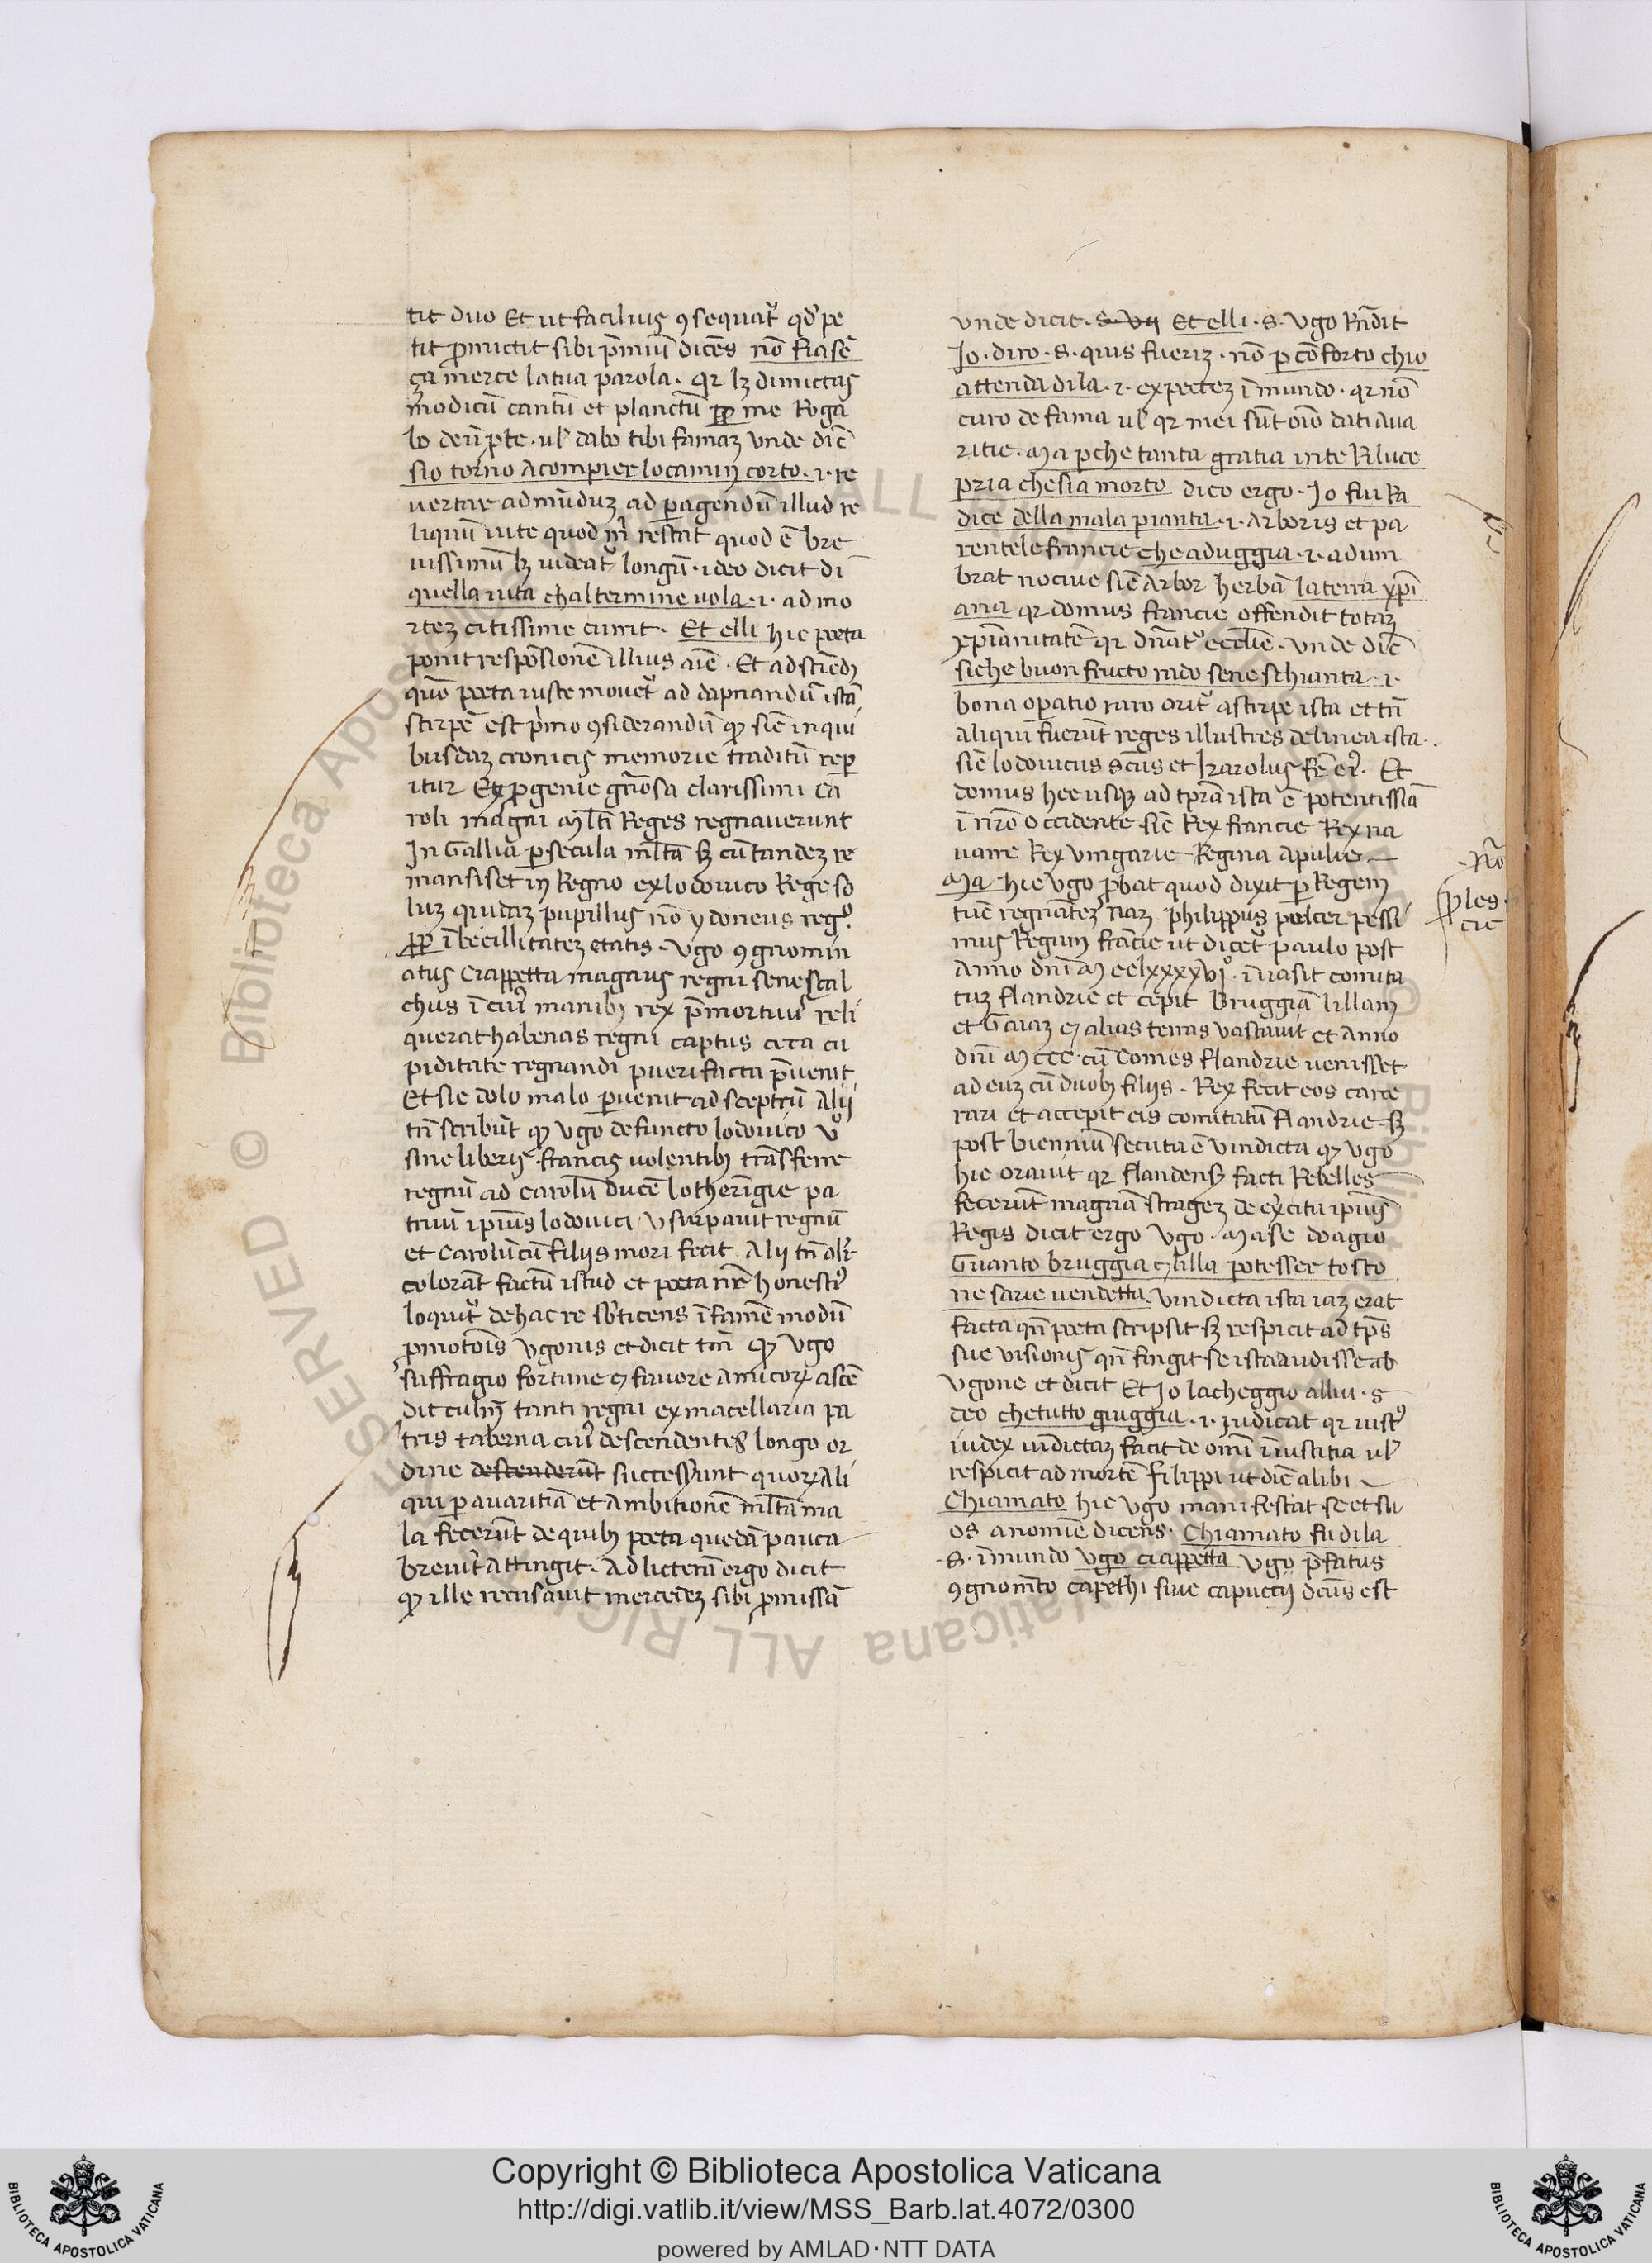 tit duo Et ut facilius ꝯsequat᷑ qd᷑ pe
tit ꝓmictit sibi p̄miū dicēs nō fia sē
ça merce la tua parola · qr lꝫ dimictas
modicū cantū et planctū ꝓꝑ me Roga
bo deū ꝓ te · ul᷑ dabo tibi famaꝫ unde dic̄
sio torno a compier lo camin corto · i · re
uertar ad mūduꝫ ad ꝑagendū illud re
liquū uite quod m̄ restat quod ē bre
uissimū lꝫ uideat᷑ longū · ideo dicit di
quella uita chal termine uola · i · ad mo
rteꝫ citissime currit · Et elli hic poeta
ponit respōsionē illius aīe · Et ad sciēdū
quō poeta iuste mouet᷑ ad dapnandū istā
stirpē est p̄mo ꝯsiderandū ꝙ sic̄ in qui
busdaꝫ cronicis memorie traditū reper
itur Ex ꝓgenie gn̄osa clarissimi ca
roli magni ml̄ti Reges regnauerunt
In Gallia ꝑ secula ml̄ta sꝫ cū tandeꝫ re
mansiset in Regno ex lodouico Rege so
luꝫ quidaꝫ pupillus nō ydoneus regº
ꝓꝑ ībecillitateꝫ etatis · Vgo ꝯgnomin
atus Ciappetta magnus regni senescal
chus ī cui᷑ manibꝫ rex p̄mortuus reli
querat habenas regni captus ceca cu
piditate regnandi pueri facta p̄uenit
Et sic dolo malo ꝑuenit ad sceptrū Alii
tn̄ scribūt ꝙ Vgo defuncto lodouico v
sine liberis francis uolentibꝫ trāsferre
regnū ad carolū ducē lotherīgie pa
truū ipiūs lodouici vsurpauit regnū
et carolū cū filiis mori fecit Alii tn̄ alr̄
colorāt factū istud et poeta nr̄ honesti᷑
loquit᷑ de hac re sb᷑ticens īfamē modū
ꝓmotōis Vgonis et dicit tm̄ ꝙ Vgo
suffragio fortune ⁊ fauore amicorꝝ ascē
dit culm̄ tanti regni ex macellaria pa
tris taberna cui᷑ descendentes longo or
dine descenderūt successerunt quorꝝ ali
qui ꝑ auaritiā et ambitionē ml̄ta ma
la fecerūt de quibꝫ poeta quedā pauca
breuit᷑ attingit · Ad licterā ergo dicit
ꝙ ille recusauit mercedeꝫ sibi ꝓmissā
vnde dicit · s · Vg Et elli · s · Vgo Rn̄dit
Io · diro · s · quis fueriꝫ · nō ꝑ cōforto chio
attenda di la · i · expecteꝫ ī mundo · qr nō
curo de fama ul᷑ qr mei sūt oīo dati aua
ritie · Ma ꝑche tanta gratia in te Riluce
pria che sia morto dico ergo · Io fui Ra
dice della mala pianta · i · arboris et pa
rentele francie che aduggia · i · adum
brat nociue sic̄ arbor herbā la terra xp̄i
ana qr domus francie offendit totaꝫ
xp̄ianitatē qr dn̄at᷑ eccl̄ie · vnde dic̄
siche buon fructo rado sene schianta · i ·
bona oꝑatio raro orit᷑ a stirpe ista et tn̄
aliqui fuerūt reges illustres de linea ista ·
sic̄ lodouicus sc̄us et karolus fr̄ ei᷑ · Et
domus hec usqꝫ ad tp̄ra ista ē potentissīa
ī nr̄o occidente sic̄ Rex francie Rex na
uarre Rex vngarie Regina apulie
Ma hic Vgo ꝓbat quod dixit ꝑ Regem
tūc regnāteꝫ naꝫ philippus pulcer pessi
mus Regum francie ut dicet᷑ paulo post
Anno dn̄i M cclxxxxviº · īuasit comita
tuꝫ flandrie et cepit Bruggiā lillam
et Gaiaꝫ ⁊ alias terras vastauit et anno
dn̄i M ccc · cū comes flandrie uenisset
ad euꝫ cū duobꝫ filiis · Rex fecit eos carce
rari et accepit eis comitatū flandrie sꝫ
post bienniū secuta ē vindicta ꝙ Vgo
hic orauit qr flandens᷑ facti Rebelles
fecerūt magnā strageꝫ de ex᷑citu ipiūs
Regis dicit ergo Vgo · Ma se doagio
Guanto bruggia ⁊ lilla potesser tosto
ne saria uendetta · vindicta ista iaꝫ erat
facta qn̄ poeta scripsit sꝫ respicit ad tp̄s
sue visionis qn̄ fingit se ista audisse ab
Vgone et dicit Et Io la cheggio allui · s
deo che tutto giuggia · i · judicat qr iust᷑
iudex uīdictaꝫ facit de om̄i īiustitia ul᷑
respicit ad mortē filippi ut dic̄ alibi
Chiamato hic Vgo manifestat se et su
os a nomīe dicens · Chiamato fu di la
· s · ī mundo Vgo ciappetta Vgo p̄fatus
ꝯgnomīto capethi siue capuccij dc̄us est